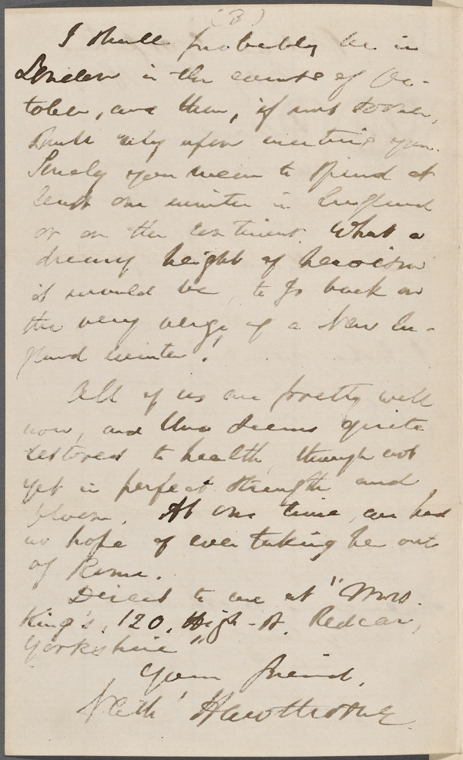 (3)
I shall probably be in
London in the course of Oc-
tober, and then, if not sooner,
shall rely upon meeting you.
Surely you mean to spend at
least one winter in England
or on the continent. What a
dreary height of heroism
it would be, to go back on
the very verge of a New En-
gland winter!
All of us are pretty well
now, and Una seems quite
restored to health, though not
yet in perfect strength and
bloom. At one time, we had
no hope of ever taking her out
of Rome.
Direct to me at "Mrs.
King's, 120, High-St. Redcar,
Yorkshire"
Your friend,
Nath' Hawthorne.